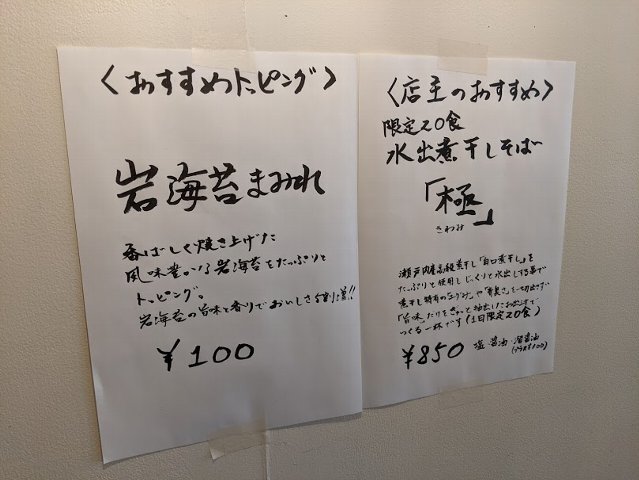 〈おすすめトッピング〉
岩海苔まみれ
香ばしく焼き上げた
風味豊かな岩海苔をたっぷりと
トッピング。
岩海苔の旨味と香りでおいしさ5割り増!!
¥100
〈店主のおすすめ〉
限定20食
水出煮干しそば
「極」
きわみ
瀬戸内産高級煮干し「白口煮干し」を
たっぷりと使用しじっくりと水出しする事で
煮干し特有の「エグみ」や「雑臭さ」を一切出さず
「旨味」だけをぎゅっと抽出したお出汁で
つくる一杯です(1日限定20食)
¥850 塩・醤油・濃醤油
(プラス¥100)